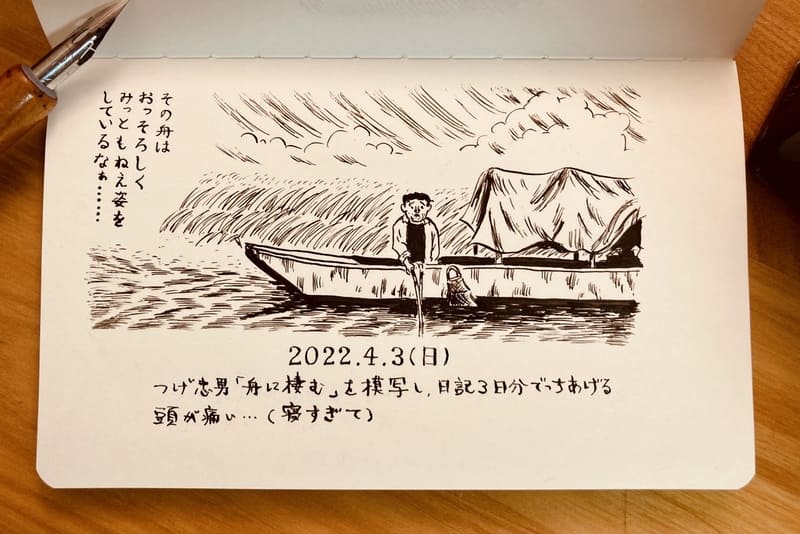 その舟は
おっそろしく
みっともねえ姿を
しているなぁ……
2022.4.3(日)
つげ忠男「舟に棲む」を模写し、日記3日分でっちあげる
頭が痛い…(寝すぎて)